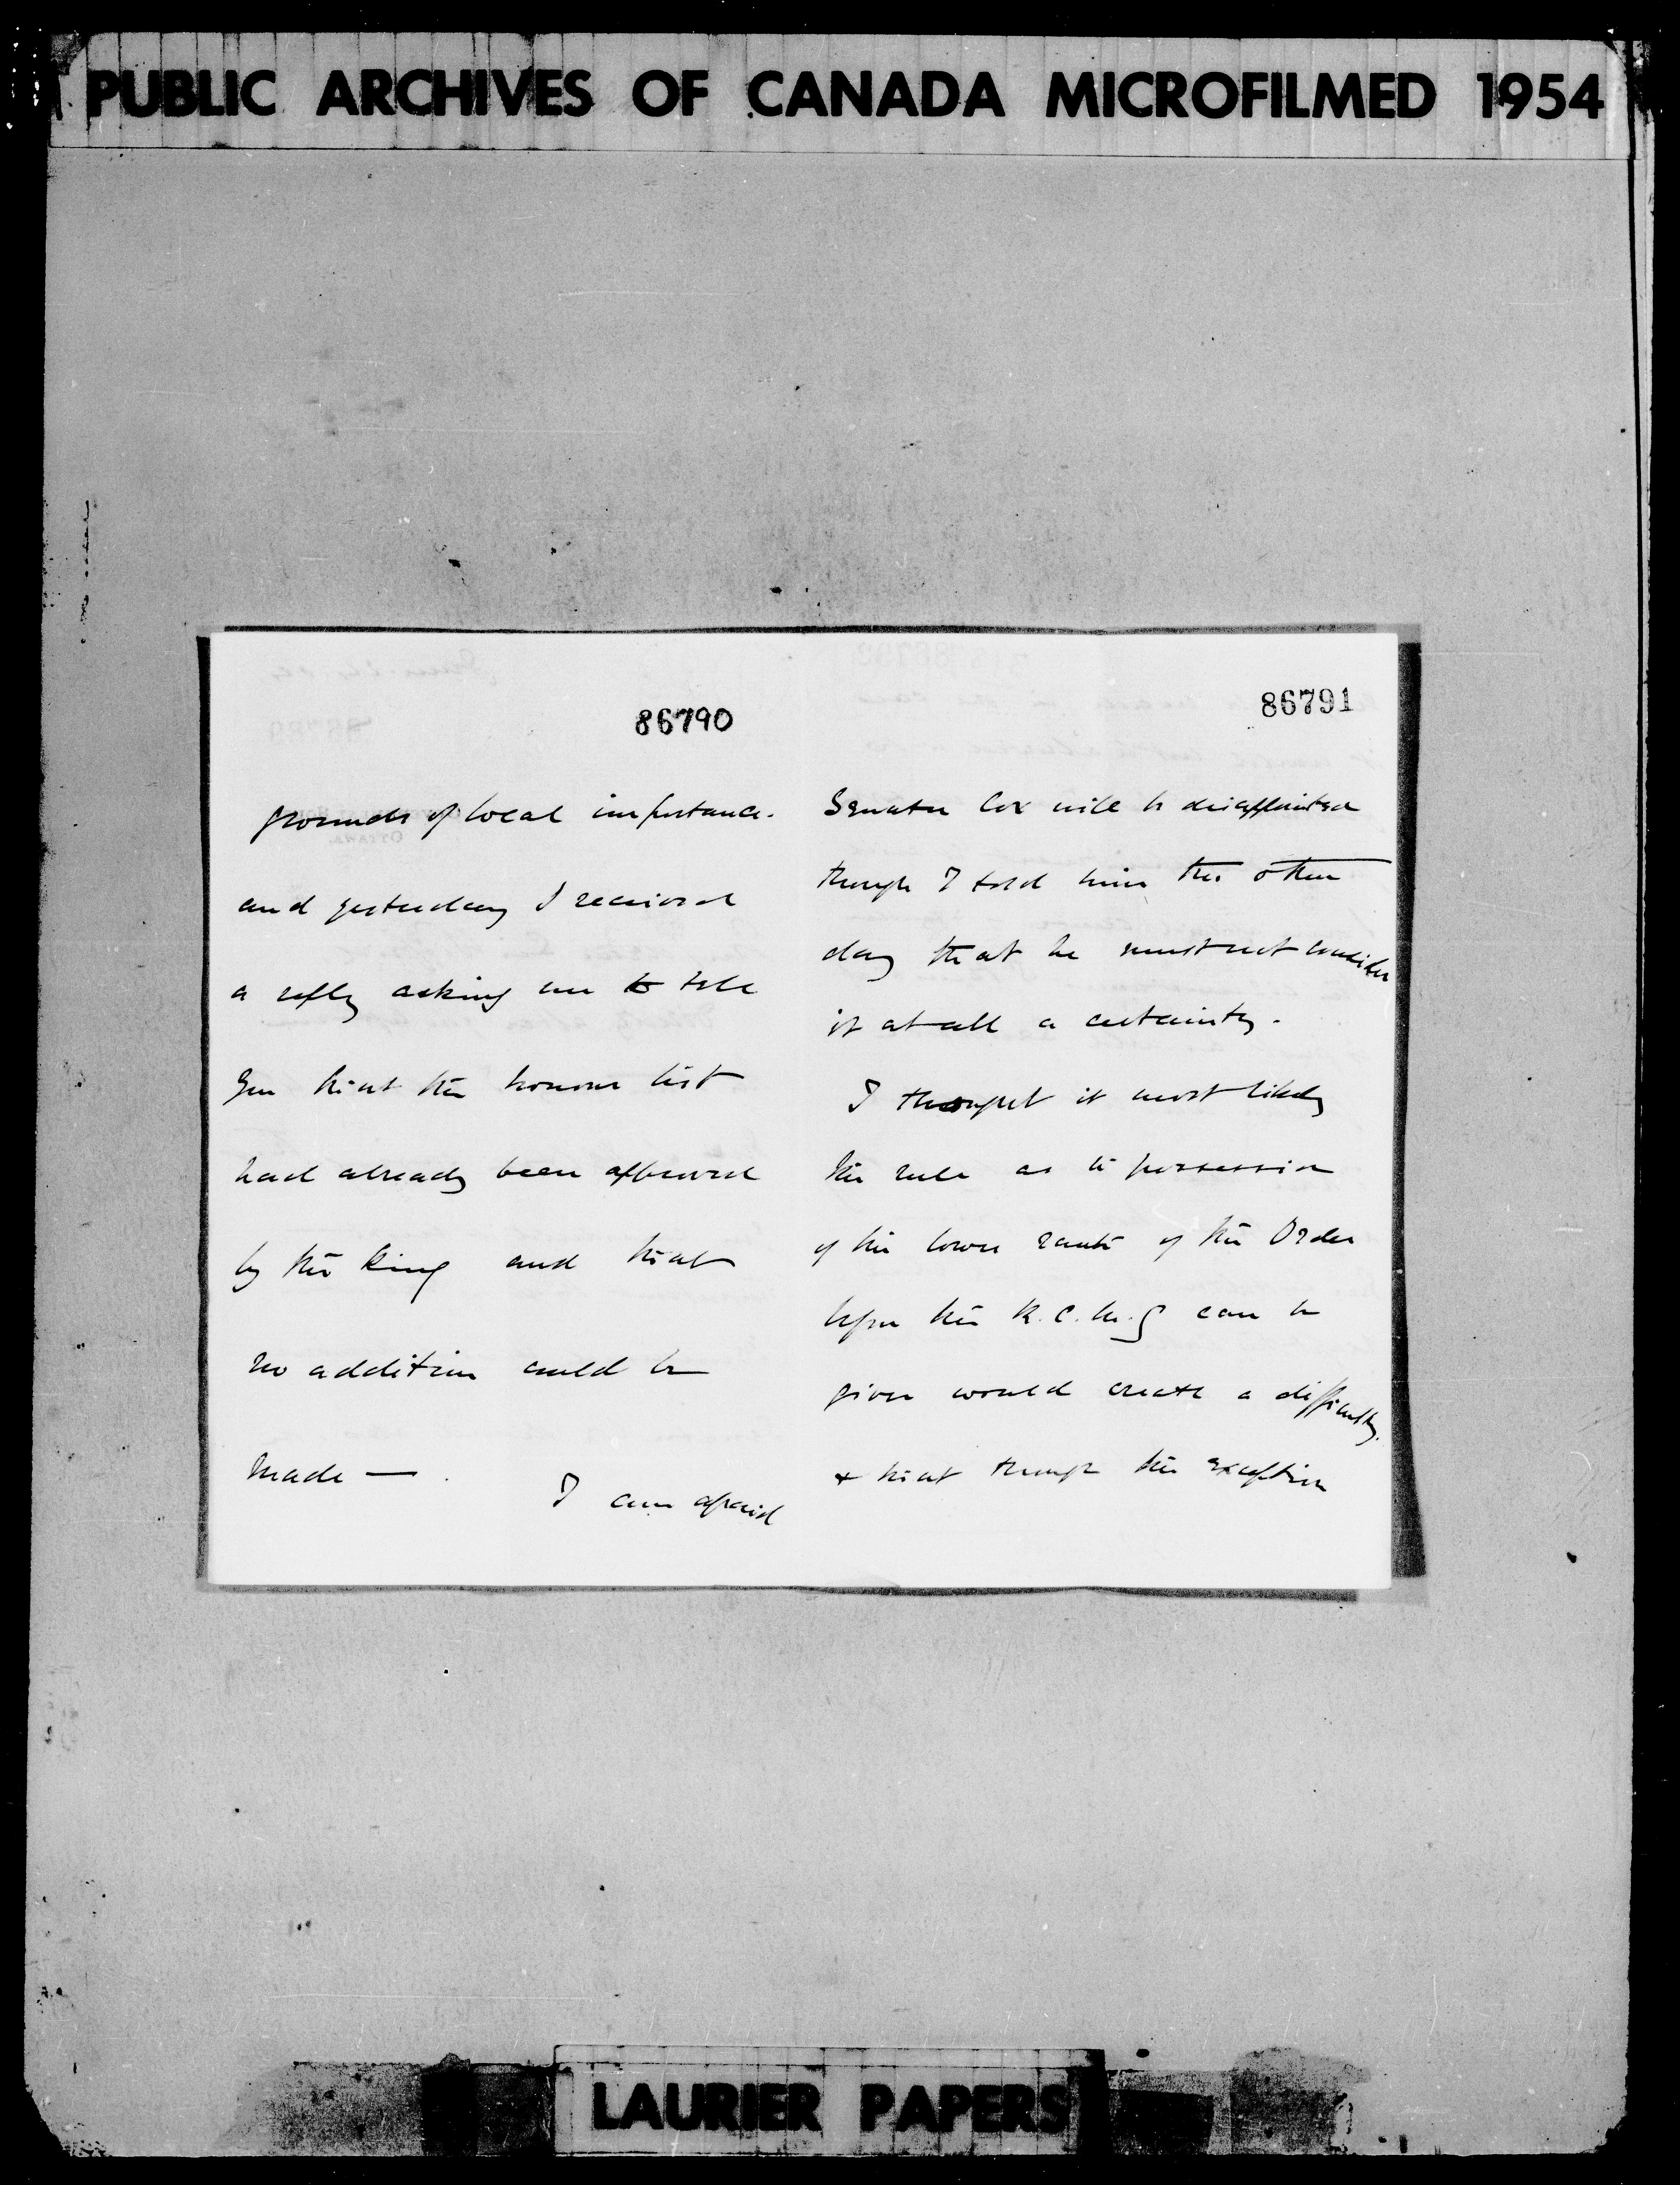 PUBLIC ARCHIVES OF CANADA MICROFILMED 1954
86790
grounds of local importance.
and yesterday I received
a reply asking me to tell
you that the honour list
had already been approved
by the King and that
no addition could be
made —.
I am afraid
86791
Senator Cox will be disappointed
though I told him the other
day that he must not consider
it at all a certainty.
I thought it most likely
the rule as to possession
of the lower rank of the Order
before the K.C.M.G can be
given would create a difficulty.
& that though the exception
LAURIER PAPERS